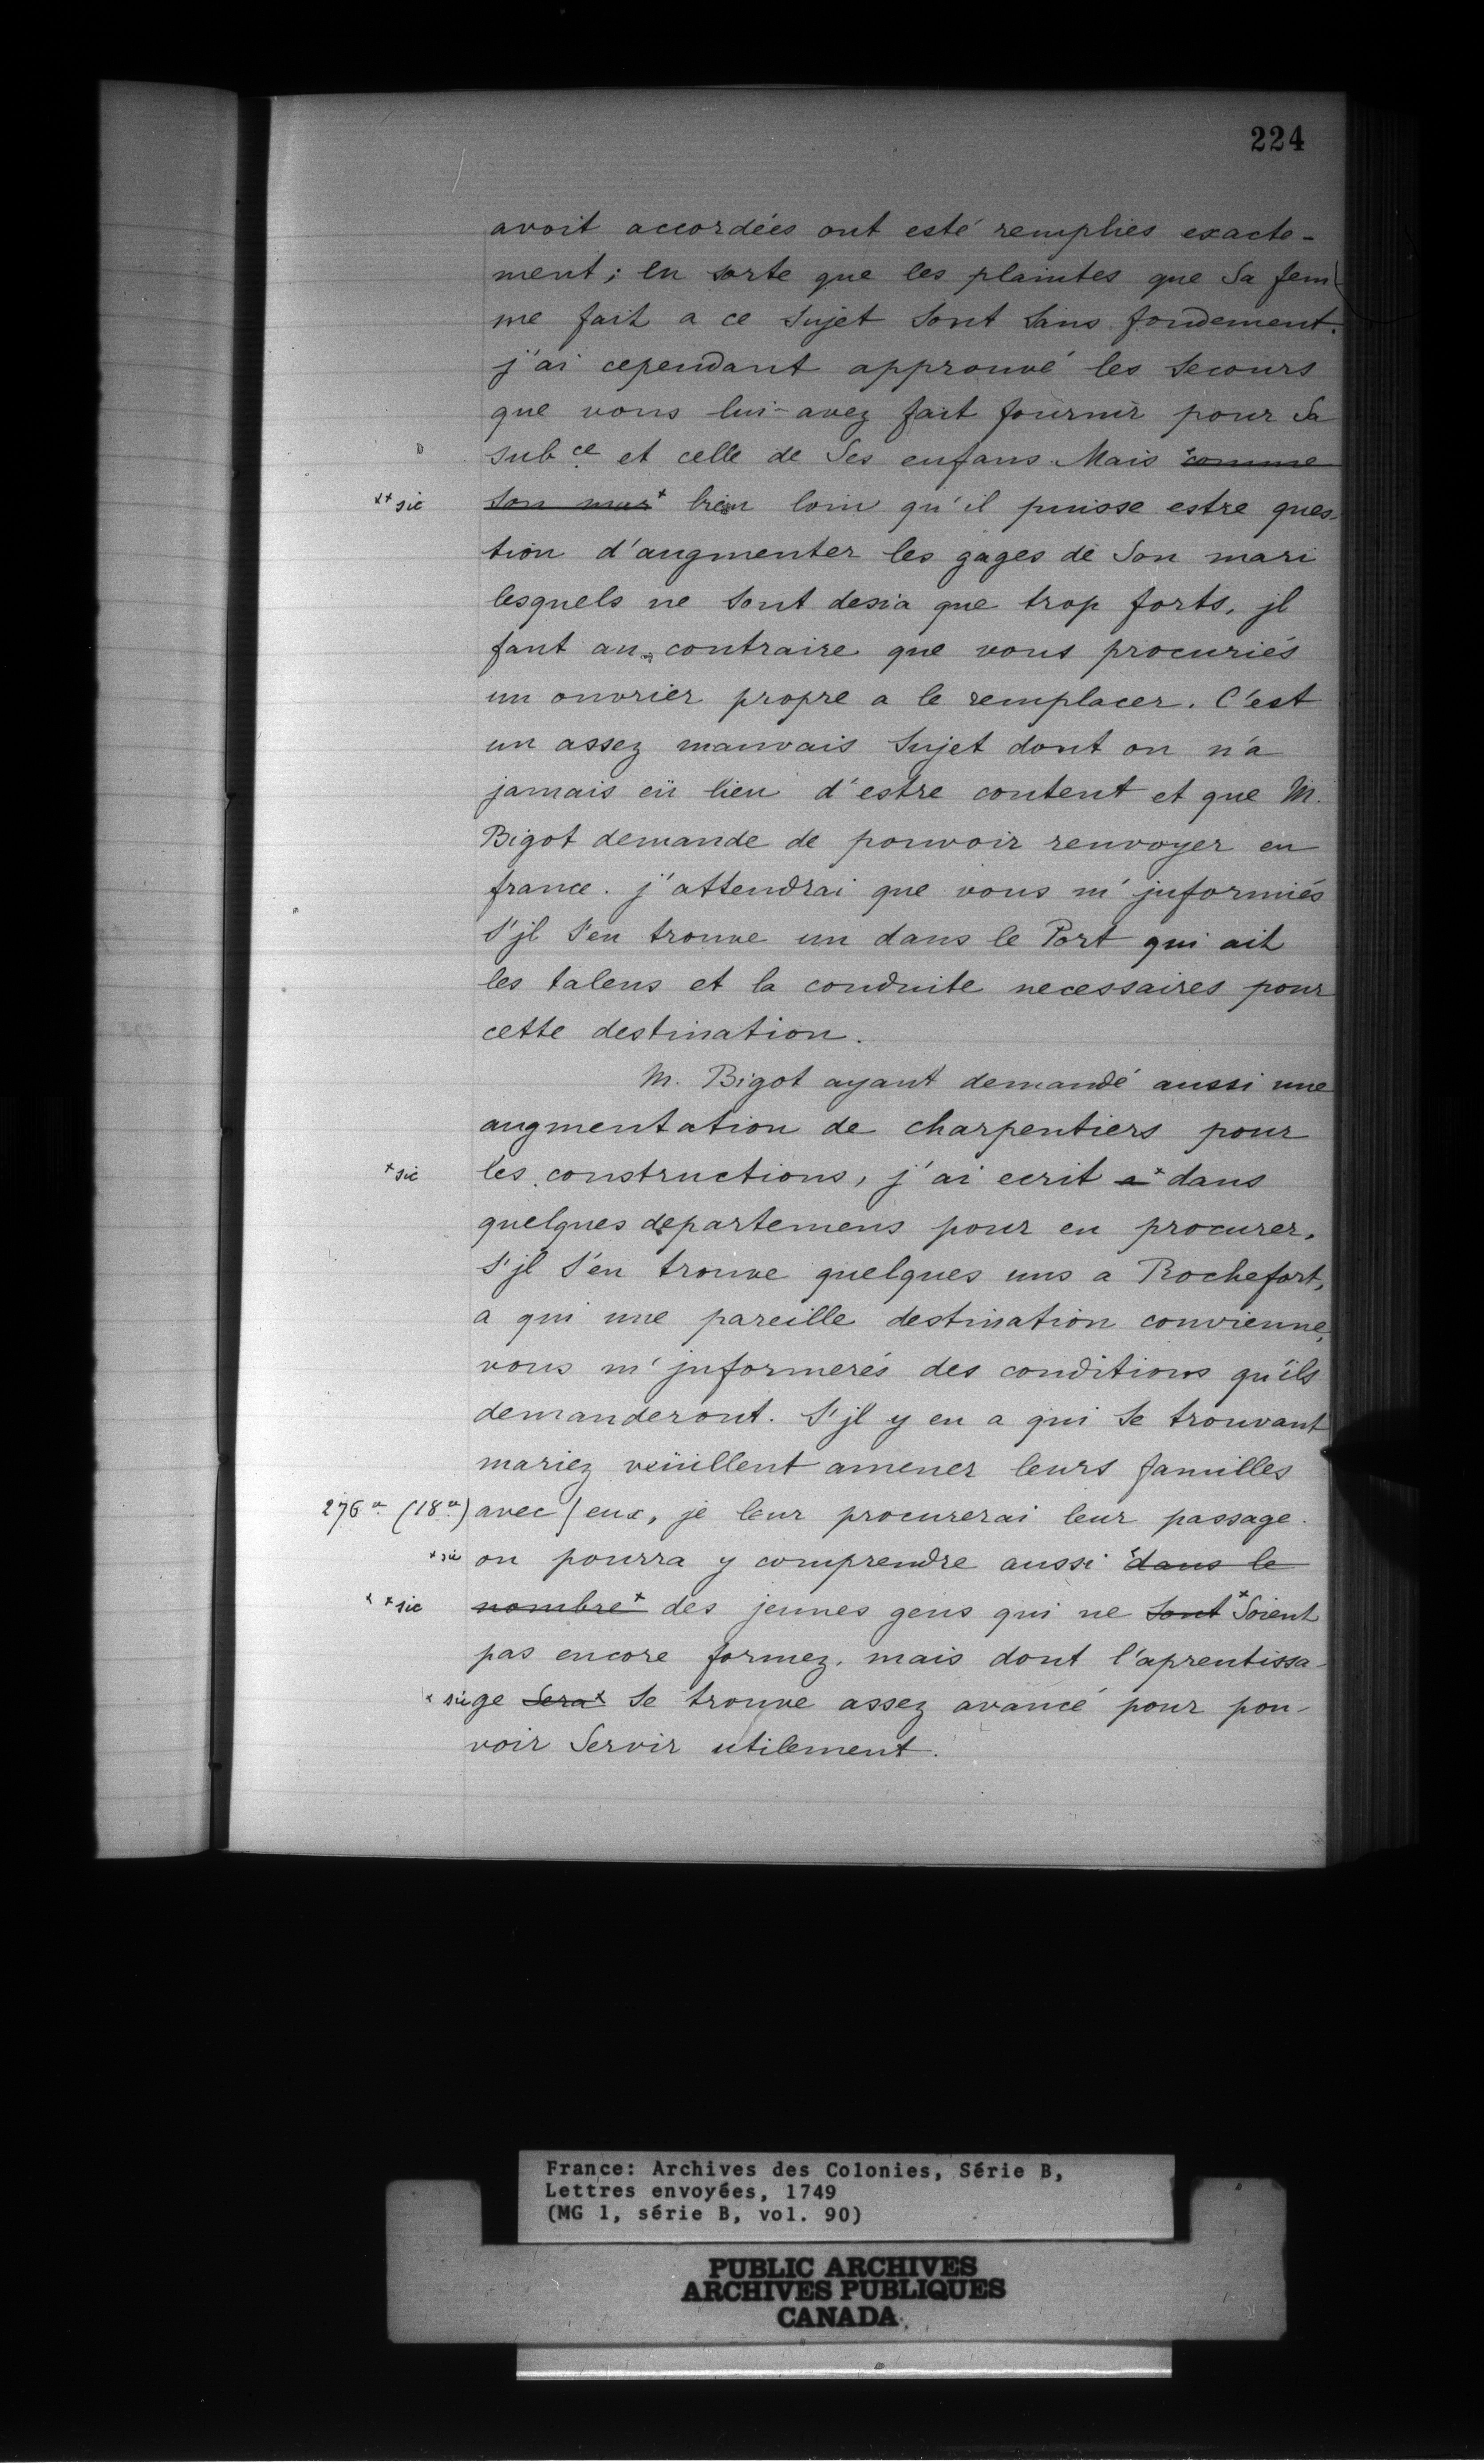 224
avoit accordées ont esté remplies exacte-
ment; en sorte que les plaintes que Sa fem
me fait a ce Sujet Sont Sans fondement.
j'ai cependant approuvé les Secours
que vous lui-avez fait fournir pour Sa
Subce et celle de Ses enfans. Mais comme
x+ sic Son mar+ bien loin qu'il puisse estre ques-
tion d'augmenter les gages de Son mari
lesquels ne Sont desia que trop forts, jl
faut au contraire que vous procuriés
un ouvrier propre a le remplacer. C'est
un assez mauvais Sujet dont on n'a
jamais eü lieu d'estre content et que M.
Bigot demande de pouvoir renvoyer en
france. j'attendrai que vous m'jnformiés
S'jl S'en trouve un dans le Port qui ait
les talens et la conduite necessaires pour
cette destination.
M. Bigot ayant demandé aussi une
augmentation de charpentiers pour
+ sic les constructions, j'ai ecrit a+ dans
quelques departemens pour en procurer.
S'jl S'en trouve quelques uns a Rochefort,
a qui une pareille destination convienne,
vous m'jnformerés des conditions qu'ils
demanderont. S'jl y en a qui Se trouvant
mariez veüillent amener leurs familles
276 v. (18 v) avec / eux, je leur procurerai leur passage.
+ sic on pourra y comprendre aussi +dans le
x + sic nombre+ des jeunes gens qui ne Sont+ Soient
pas encore formez, mais dont l'aprentissa-
x sic ge Sera x Se trouve assez avancé pour pou-
voir Servir utilement.
France: Archives des Colonies, Série B,
Lettres envoyées, 1749
(MG 1, série B, vol. 90)
PUBLIC ARCHIVES
ARCHIVES PUBLIQUES
CANADA